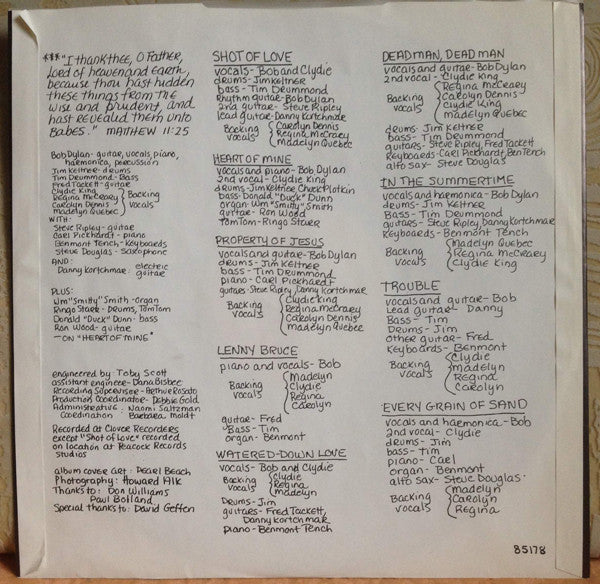 ***"I thank thee, O Father,
Lord of heaven and Earth,
because thou hast hidden
these things from the
wise and prudent, and
hast revealed them unto
Babes." MATTHEW 11:25
Bob Dylan - guitar, vocals, piano,
harmonica, percussion
Jim Keltner - drums
Tim Drummond - Bass
Fred Tackett - guitar
Clydie King
Regina McCreary
Carolyn Dennis
Madelyn Quebec
Backing
vocals
WITH:
Steve Ripley - guitar
Carl Pickhardt - piano
Benmont Tench - Keyboards
Steve Douglas - Saxophone
AND:
Danny Kortchmar - electric
guitar
PLUS:
Wm "Smitty" Smith - Organ
Ringo Starr - Drums, TomTom
Donald "Duck" Dunn - bass
Ron Wood - guitar
— ON "HEART OF MINE"
engineered by Toby Scott
assistant engineer - Dana Bisbee
Recording Supervisor - Arthur Rosato
Production Coordinator - Debbie Gold
Administrative Coordination - Naomi Saltzman
Barbara Moldt
Recorded at Clover Recorders
except "Shot of Love" recorded
on location at Peacock Records
Studios
album cover art: Pearl Beach
Photography: Howard Alk
Thanks to: Don Williams
Paul Bolland
Special thanks to: David Geffen
SHOT OF LOVE
vocals - Bob and Clydie
drums - Jim Keltner
bass - Tim Drummond
Rhythm guitar - Bob Dylan
2nd guitar - Steve Ripley
lead guitar - Danny Kortchmar
Backing
vocals
Carolyn Dennis
Regina McCreary
madelyn Quebec
HEART OF MINE
vocals and piano - Bob Dylan
2nd vocal - Clydie King
drums - Jim Keltner, Chuck Plotkin
bass - Donald "Duck" Dunn
organ - Wm "Smitty" Smith
guitar - Ron Wood
TomTom - Ringo Starr
PROPERTY OF JESUS
vocals and guitar - Bob Dylan
drums - Jim Keltner
bass - Tim Drummond
piano - Carl Pickhardt
guitars - Steve Ripley, Danny Kortchmar
Backing
vocals
Clydie King
Regina McCreary
Carolyn Dennis
madelyn Quebec
LENNY BRUCE
piano and vocals - Bob
Backing
vocals
Madelyn
Clydie
Regina
Carolyn
guitar - Fred
Bass - Tim
organ - Benmont
WATERED-DOWN LOVE
vocals - Bob and Clydie
Backing
vocals
Clydie
Regina
madelyn
Drums - Jim
guitars - Fred Tackett,
Danny Kortchmar
piano - Benmont Tench
DEAD MAN, DEAD MAN
vocals and guitar - Bob Dylan
2nd vocal - Clydie King
Backing
vocals
Regina McCreary
Carolyn Dennis
Clydie King
madelyn Quebec
drums - Jim Keltner
bass - Tim Drummond
guitars - Steve Ripley, Fred Tackett
Keyboards - Carl Pickhardt, Ben Tench
alto sax - Steve Douglas
IN THE SUMMERTIME
vocals and harmonica - Bob Dylan
drums - Jim Keltner
Bass - Tim Drummond
guitars - Steve Ripley, Danny Kortchmar
Keyboards - Benmont Tench
Backing
vocals
Madelyn Quebec
Regina McCreary
Clydie King
TROUBLE
vocals and guitar - Bob
Lead guitar - Danny
Bass - Tim
Drums - Jim
other guitar - Fred
Keyboards - Benmont
Backing
vocals
Clydie
Madelyn
Regina
Carolyn
EVERY GRAIN OF SAND
vocals and harmonica - Bob
2nd vocal - Clydie
drums - Jim
bass - Tim
piano - Carl
organ - Benmont
alto Sax - Steve Douglas
Backing
vocals
madelyn
Carolyn
Regina
85178